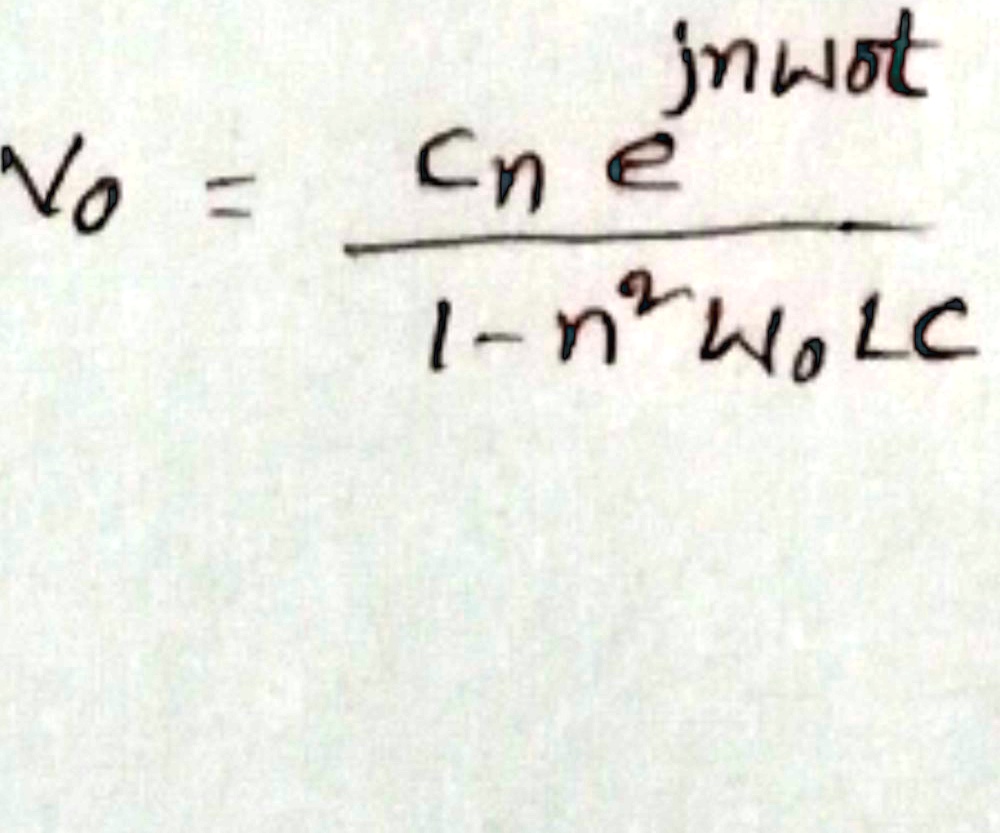 V₀ = Cn e^{jnω₀t} / 1 - n² W₀ LC